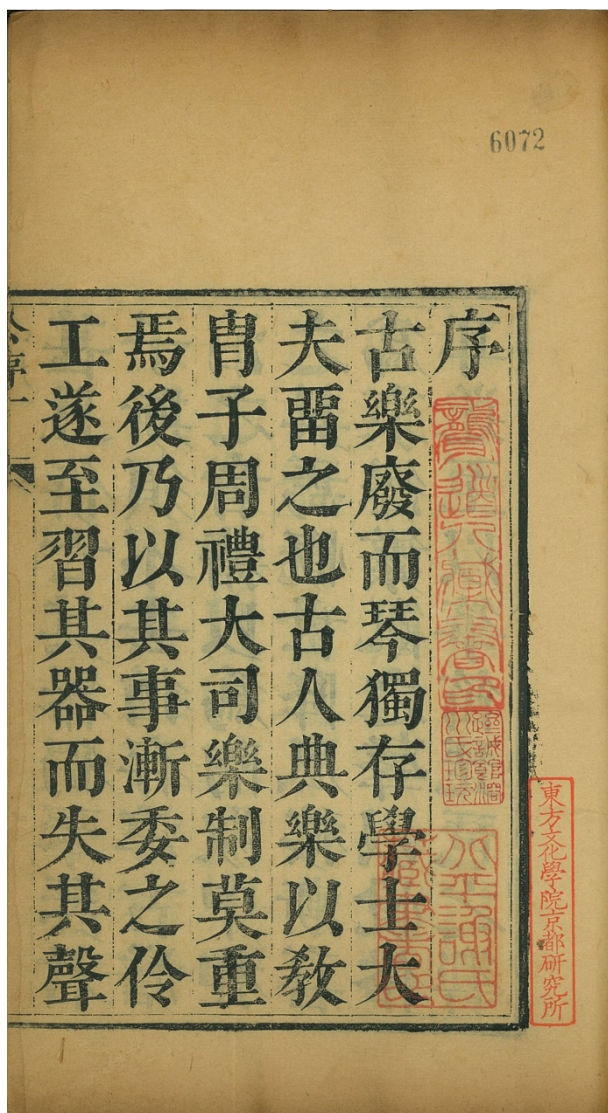 6072
序
古樂廢而琴獨存學士大
夫畱之也古人典樂以敎
胄子周禮大司樂制莫重
焉後乃以其事漸委之伶
工遂至習其器而失其聲
東方文化學院京都研究所